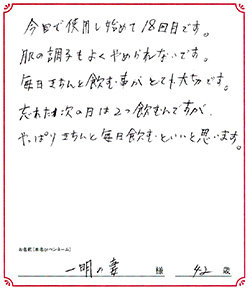 今回で使用し始めて18回目です。
肌の調子もよくやめられないです。
毎日きちんと飲む事がとても大切です。
忘れた次の日は2つ飲むんですが、
やっぱりきちんと毎日飲むといいと思います。
お名前(本名orペンネーム)
一明の妻 様 42 歳